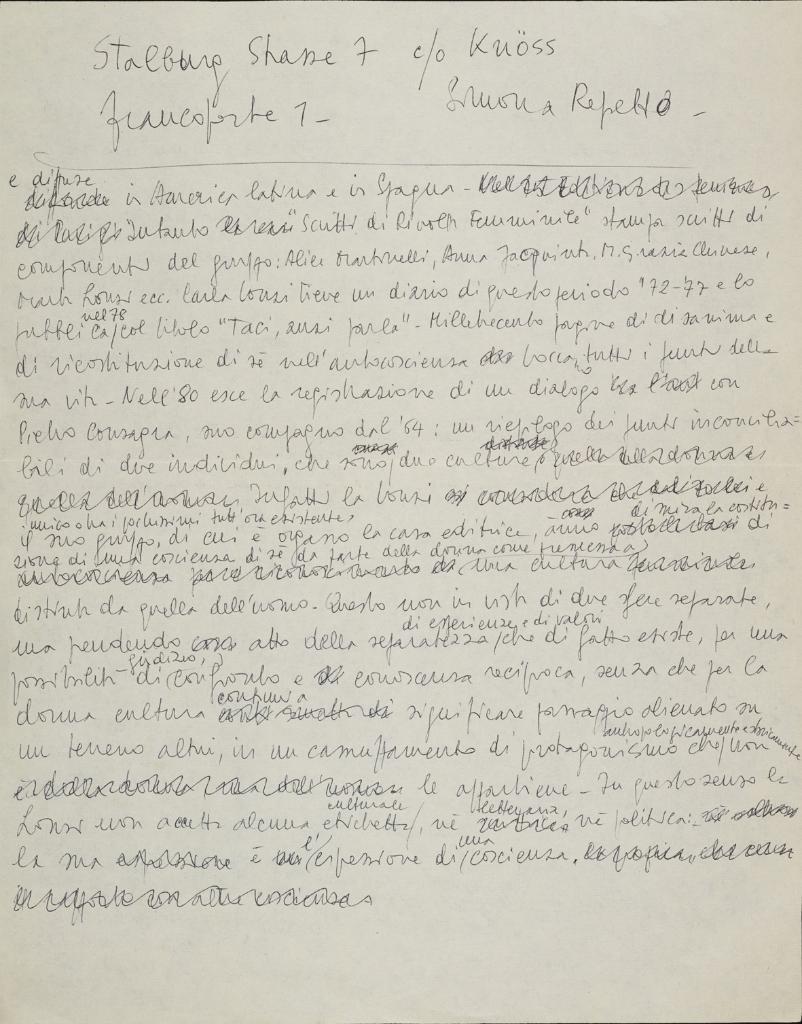 Stalburg Strasse 7 c/o Knöss
Francoforte 1 - Simona Repetto -
e diffuse
in America latina e in Spagna -
Intanto "Scritti di Rivolta Femminile" stampa scritti di
componenti del gruppo: Alice Martinelli, Anna Jacquinta, M. Grazia Chinese,
Marta Lonzi ecc. Carla Lonzi tiene un diario di questo periodo '72-77 e lo
nel 78
pubblica/col titolo "Taci, anzi parla" - Milletrecento pagine di disanima e
di ricostituzione di sé nell'autocoscienza tocca tutti i punti della
sua vita - Nell'80 esce la registrazione di un dialogo con
Pietro Consagra, suo compagno dal '64: un riepilogo dei punti inconcilia=
bili di due individui, che sono/due culture,
Infatti la Lonzi e
unico o tra i pochissimi tutt'ora esistente, di mira la costitu=
il suo gruppo, di cui è organo la casa editrice, di
zione di una coscienza di sé da parte della donna come premessa a
una cultura
distinta da quella dell'uomo. Questo non in vista di due sfere separate,
di esperienze e di valori
ma prendendo atto della separatezza/che di fatto esiste, per una
giudizio,
possibilità di/confronto e conoscenza reciproca, senza che per la
continui a
donna cultura significare passaggio alienato su
antropologicamente e storicamente
un terreno altrui, in un camuffamento di protagonismo che/non
le appartiene - In questo senso la
culturale letteraria,
Lonzi non accetta alcuna etichetta/, né né politica:
l' una
la sua è /espressione di/coscienza.